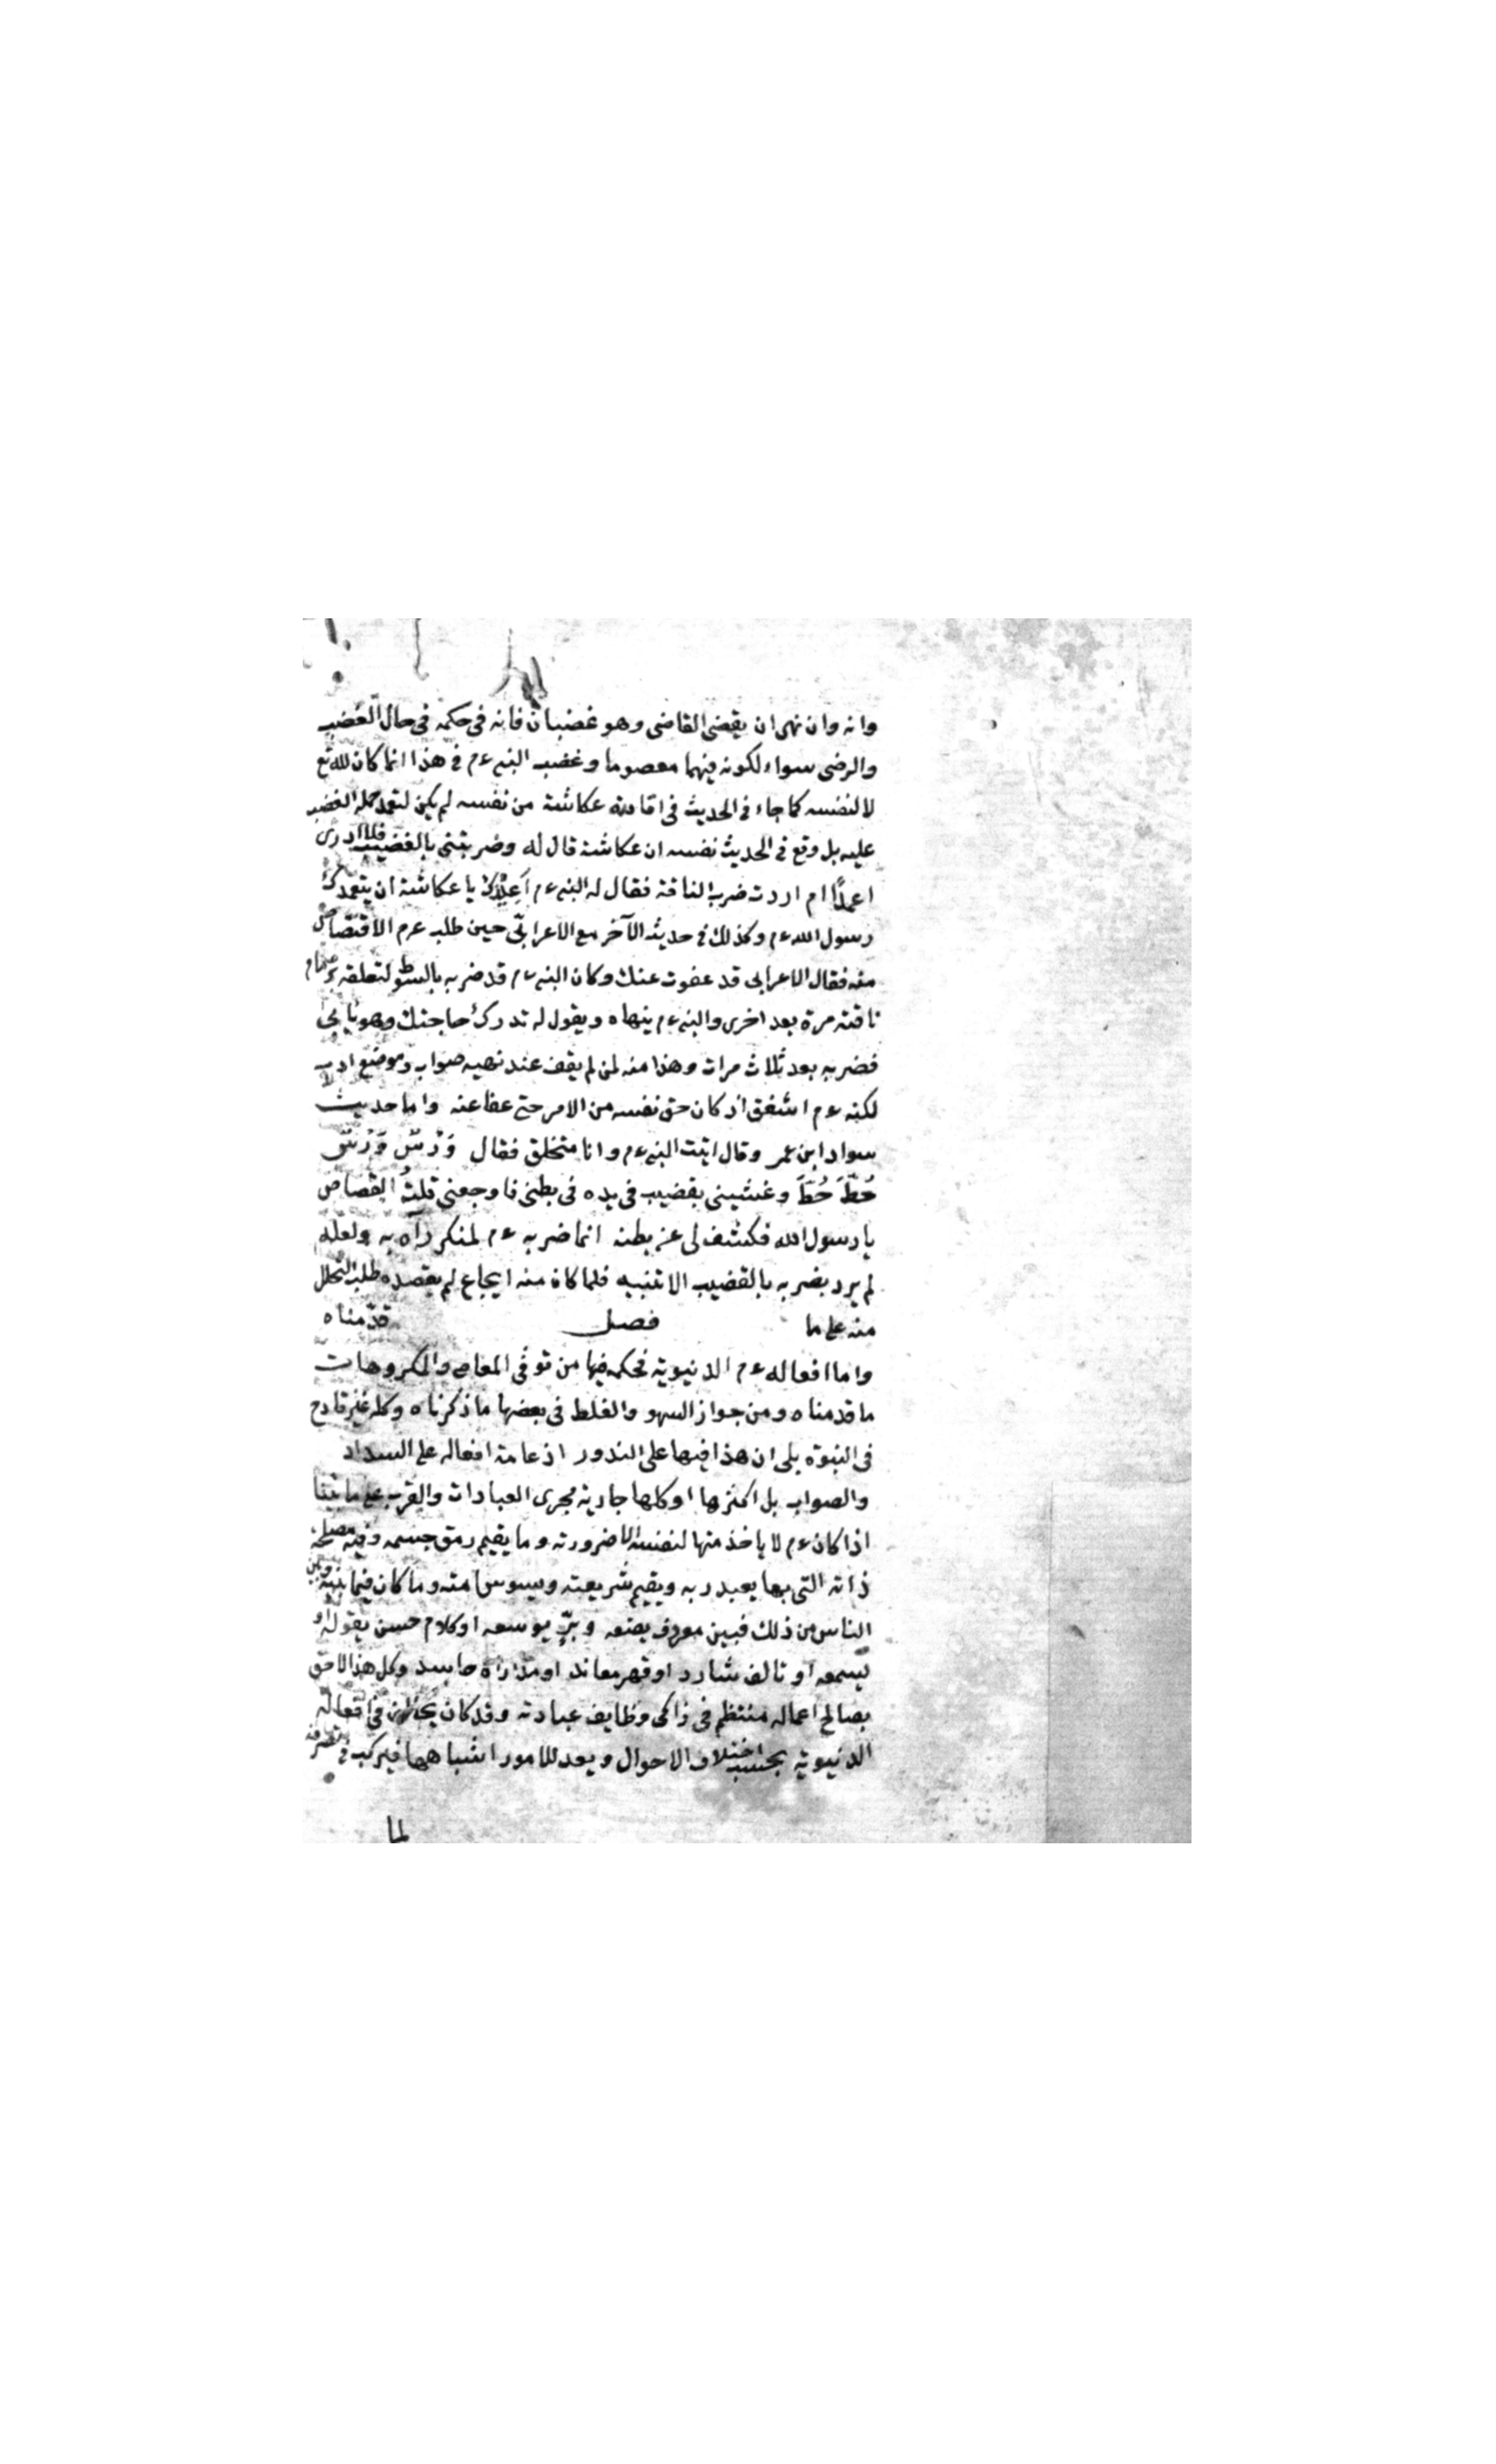 وانه وان نهى ان يقضى القاضى وهو غضبان فانه فى حكمه فى حال الغضب
والرضى سواء لكونه فيهما معصوما وغضب النبى ءم فى هذا انما كان لله تع
لا لنفسه كما جاء فى الحديث فى اقادته عكاشة من نفسه لم يكن لتعد حمله الغضب
عليه بل وقع فى الحديث نفسه ان عكاشة قال له وضربتنى بالقضيب فلا ادرى
اعمدًا ام اردت ضرب الناقة فقال له النبى ءم اعيذك يا عكاشة ان يتعمدك
رسول الله ءم وكذلك فى حديثه الآخر مع الاعرابى حين طلب ءم الاقتصاص
منه فقال الاعرابى قد عفوت عنك وكان النبى ءم قد ضربه بالسوط لتعلقه بزمام
ناقته مرة بعد اخرى والنبى ءم ينهاه ويقول له تدرك حاجتك وهو يابى
فضربه بعد ثلاث مرات وهذا منه لمن لم يقف عند نهيه صواب وموضع ادب
لكنه ءم اشفق اذ كان حق نفسه من الامر حتى عفا عنه واما حديث
سواد ابن عمر وقال اتيت النبى ءم وانا متخلق فقال وَرْسٌ وَرْسٌ
حُطَّ حُطَّ وغشينى بقضيب فى يده فى بطنى فاوجعنى قلتُ القصاص
يا رسول الله فكشف لى عن بطنه انما ضربه ءم لمنكر رآه به ولعله
لم يرد بضربه بالقضيب الا تنبيه فلما كان منه ايجاع لم يقصده طلب التحلل
منه على ما فصل قدّمناه
واما افعاله ءم الدنيوية فحكمه فيها من توقى المعاصى والمكروهات
ما قدمناه ومن جواز السهو والغلط فى بعضها ما ذكرناه وكله غير قادح
فى النبوة بلى ان هذا فيها على الندور اذ عامة افعاله على السداد
والصواب بل اكثرها او كلها جارية مجرى العبادات والقرب على ما بينا
اذا كان ءم لا ياخذ منها لنفسه الا ضرورته وما يقيم رمق جسمه وفيه مصلحة
ذاته التى بها يعبد ربه ويقيم شريعته ويسوس امته وما كان فيما بينه وبين
الناس من ذلك فبين معروف يصنعه وبرّ يوسعه او كلام حسن يقوله او
يسمعه او تالف شارد او قهر معاند او مداراة حاسد وكل هذا لاحق
بصالح اعماله منتظم فى زاكى وظايف عبادته وقد كان يخالف فى افعاله
الدنيوية بحسب اختلاف الاحوال ويعد للامور اشباهها فيركب فى تصرفه
لما